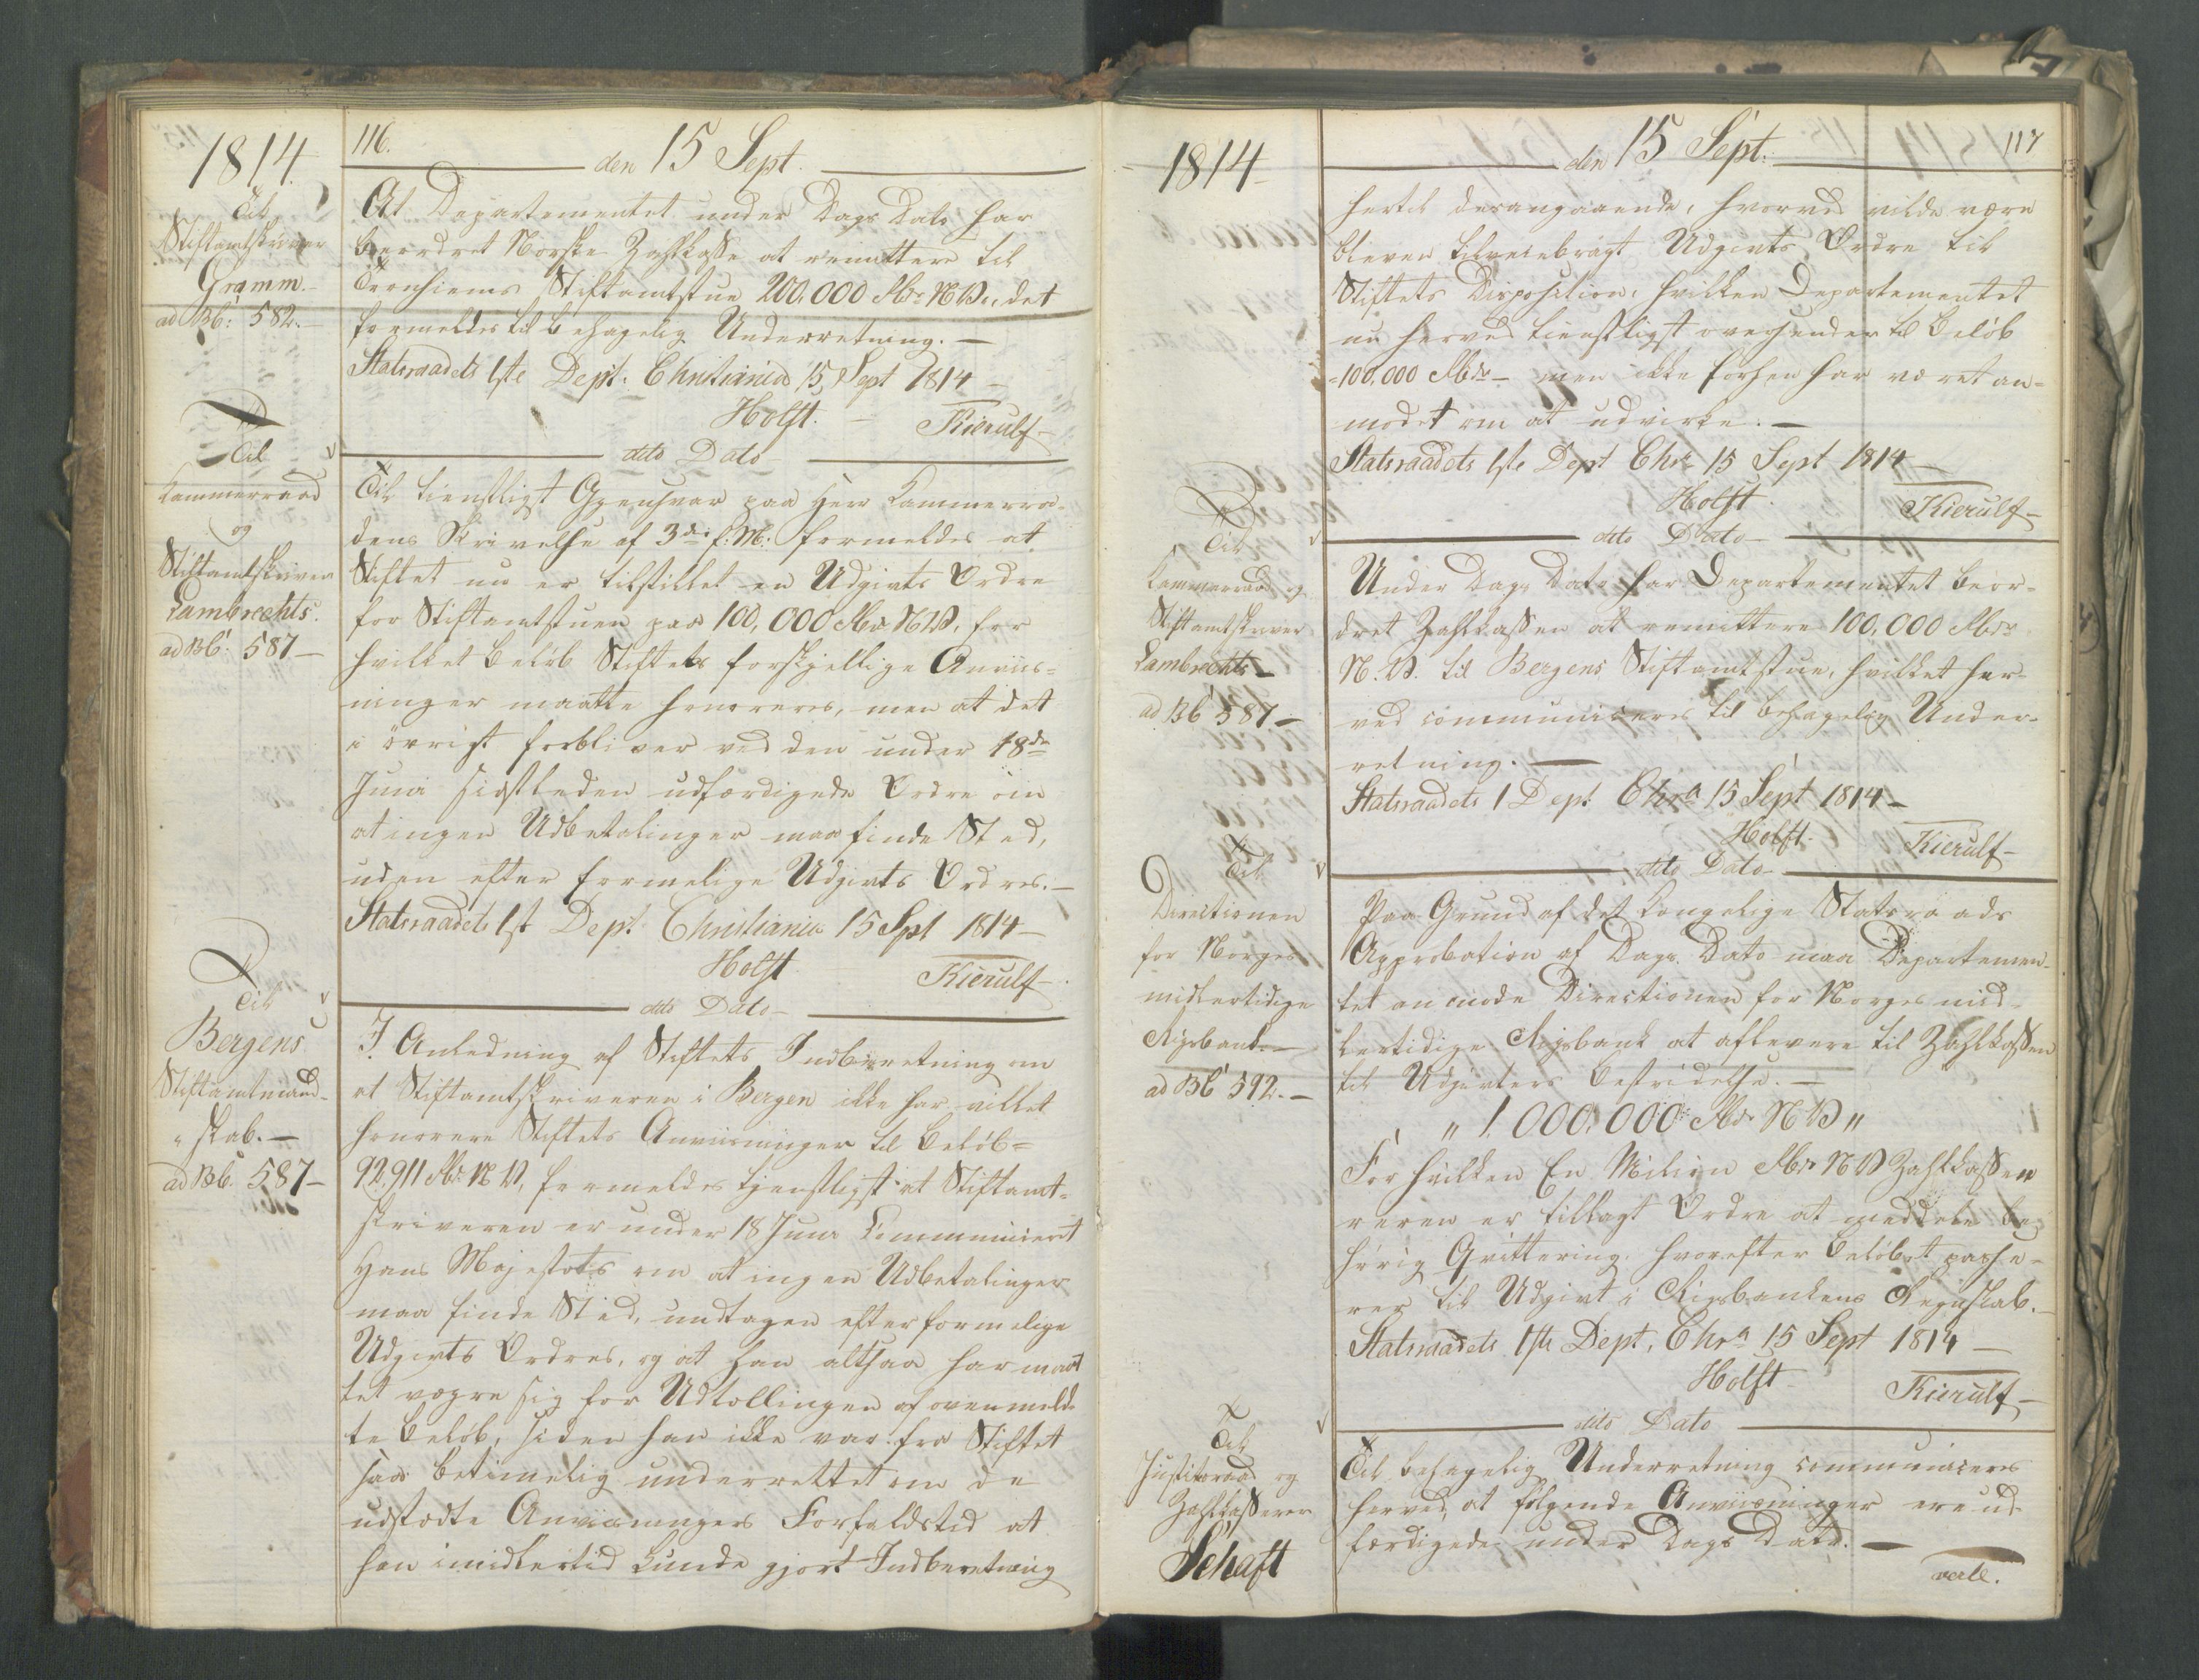 1814.
116.
den 15 Sept.
Til
Stiftamtskriver
Gramm.
ad Bb: 582.
At Departementet under Dags Dato har
beordret Norske Zahlkasse at remittere til
Tronhiems Stiftamtstue 200,000 Rbdr NV., det
formeldes til behagelig Underretning. —
Statsraadets 1ste Dept. Christiania 15 Sept 1814 —
Holst. — Kierulf —
dito Dato
Til
Kammerraad
og
Stiftamtskriver
Lambrechts.
ad Bb: 587 —
Til tienstligst Gjensvar paa Herr Kammerra-
dens Skrivelse af 3de f: M: formeldes at
Stiftet nu er tilstillet en Udgivts Ordre
for Stiftamtstuen paa 100,000 Rbdr NV, for
hvilket Beløb Stiftets forskjellige Anviis-
ninger maatte honoreres, men at det
i øvrigt forbliver ved den under 18de
Juni sidstleden udfærdigede Ordre om
at ingen Udbetalinger maa finde Sted,
uden efter formelige Udgivts Ordres. —
Statsraadets 1st Dept Christiania 15 Spt 1814 —
Holst Kierulf —
dito Dato —
Til
Bergens
Stiftamtmand-
skab. —
ad Bb. 587 —
I Anledning af Stiftets Indberetning om
at Stiftamtskriveren i Bergen ikke har villet
honorere Stiftets Anviisninger til Beløb =
92,911 Rbdr NV, formeldes tjenstligst at Stiftamt-
skriveren er under 18 Juni Communiceret
Hans Majestæts om at ingen Udbetalinger
maa finde Sted, undtagen efter formelige
Udgivts Ordres, og at han altsaa har maat
tet vægre sig for Udtællingen af ovenmeld-
te Beløb, siden han ikke var fra Stiftet
saa betimelig underrettet om de
udstædte Anviisningers Forfaldstid at
han imidlertid kunde gjort Indberetning
1814 —
den 15 Sept.
117
hertil desangaaende, hvorved vilde være
bleven tilveiebragt Udgivts Ordre til
Stiftets Disposition, hvilken Departementet
nu herved tienstligst oversender til Beløb
= 100,000 Rbdr — men ikke forhen har været an-
modet om at udvirke. —
Statsraadets 1ste Dept Chra 15 Sept 1814 —
Holst. Kierulf —
dito Dato —
Til
Kammerraad og
Stiftamtskriver
Lambrechts —
ad Bb 587. —
Under Dags Dato har Departementet beor-
dret Zahlkassen at remittere 100,000 Rbdr
N.V. til Bergens Stiftamtstue, hvilket her-
ved communiceres til behagelig Under-
retning. —
Statsraadets 1 Dept Chra 15 Sept 1814 —
Holst. Kierulf —
dito Dato —
Til
Directionen
for Norges
midlertidige
Rigsbank. —
ad Bb 592. —
Paa Grund af det Kongelige Statsraads
Approbation af Dags Dato maa Departemen-
tet anmode Directionen for Norges mid-
lertidige Rigsbank at aflevere til Zahlkassen
til Udgivters Bestridelse. —
" 1,000,000 Rbdr NV "
For hvilken En Million Rbdr NV Zahlkasse
reren er tillagt Ordre at meddele be-
hørig Qvittering, hvorefter Beløbet passe-
rer til Udgivt i Rigsbankens Regnskab. —
Statsraadets 1ste Dept. Chra 15 Sept 1814 —
Holst — Kierulf —
dito Dato
Til
Justitsraad og
Zahlkasserer
Schaft
Til behagelig Underretning communiceres
herved, at følgende Anviisninger ere ud-
færdigede under Dags Dato. —
verte.